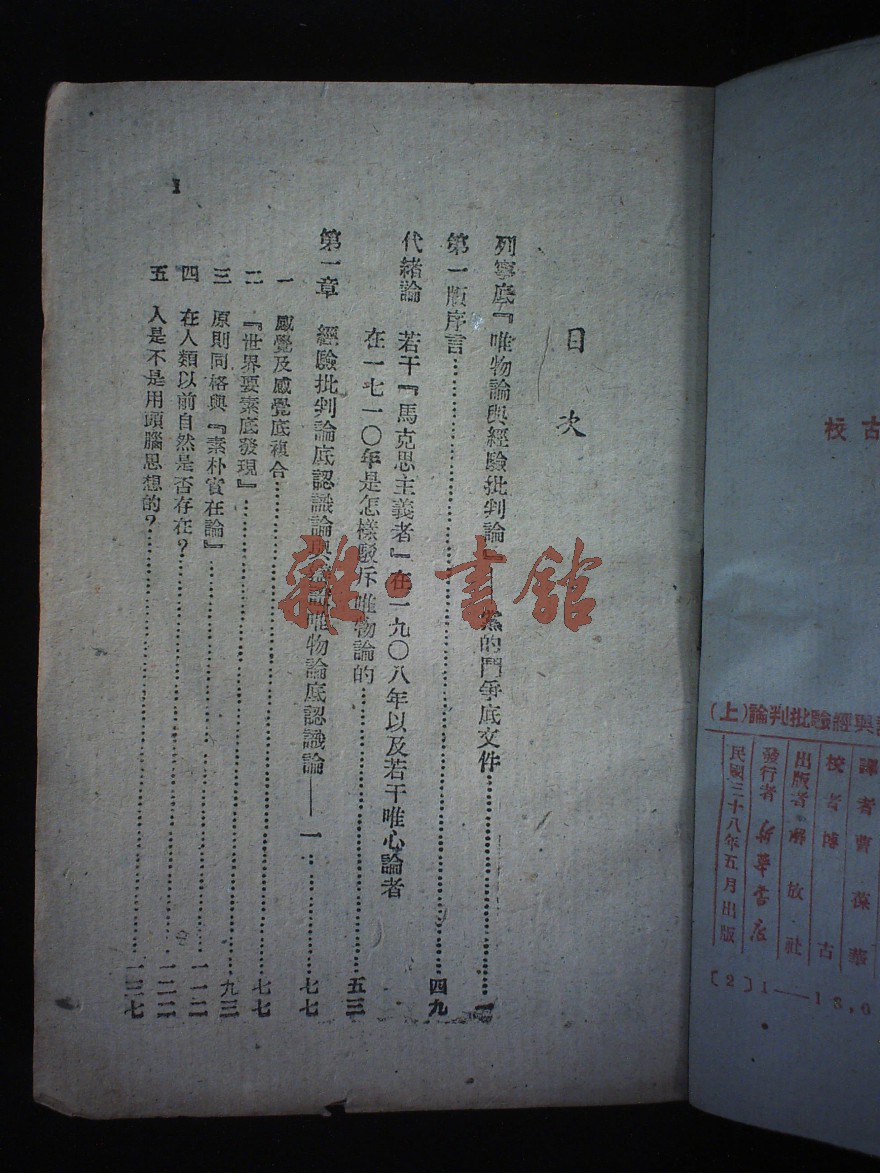 目次
列寧底『唯物論與經驗批判論』——黨的鬥爭底文件…………一
第一版序言…………四九
代緒論　若干『馬克思主義者』在一九〇八年以及若干唯心論者
在一七一〇年是怎樣駁斥唯物論的…………五三
第一章　經驗批判論底認識論與辯證唯物論底認識論——一…………七七
一　感覺及感覺底複合…………七七
二　『世界要素底發現』…………九三
三　原則同格與『素朴實在論』…………一一二
四　在人類以前自然是否存在？…………一二二
五　人是不是用頭腦思想的？…………一三七
1
古校
與經驗批判論（上）
譯者曹葆華
校者博古
出版者解放社
發行者新華書店
民國三十八年五月出版
〔2〕1—13,0
雜·書館